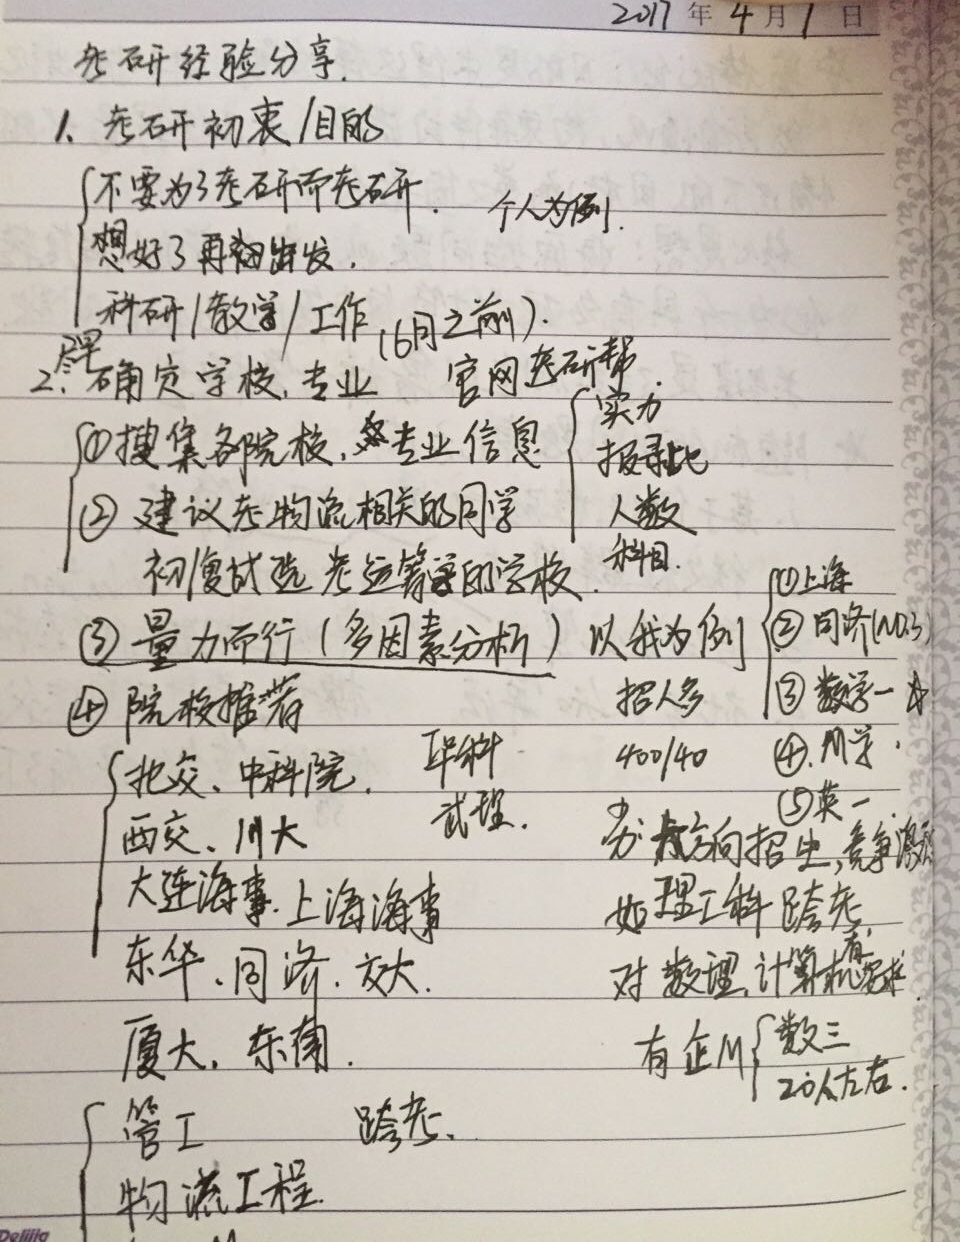 2017年4月1日
考研经验分享.
1、考研初衷/目的
不要为了考研而考研. 个人为例.
想好了再出发.
科研/教学/工作 (6月之前).
尽早
2、确定学校、专业 官网 考研帮.
①搜集各院校、专业信息
实力
报录比
人数
科目.
②建议考物流相关的同学
初/复试选考运筹学的学校.
③量力而行(多因素分析) 以我为例
①上海
②同济(NO.3)
③数学一
④.
⑤英一
④院校推荐 招人多
北交、中科院. 400/40
西交、川大
方向招生,竞争激烈
大连海事、上海海事 理工科跨考.
东华、同济、交大. 对数理、计算机有要求.
厦大、东南. 有企M
数三
20人左右.
管工 跨考.
物流工程.